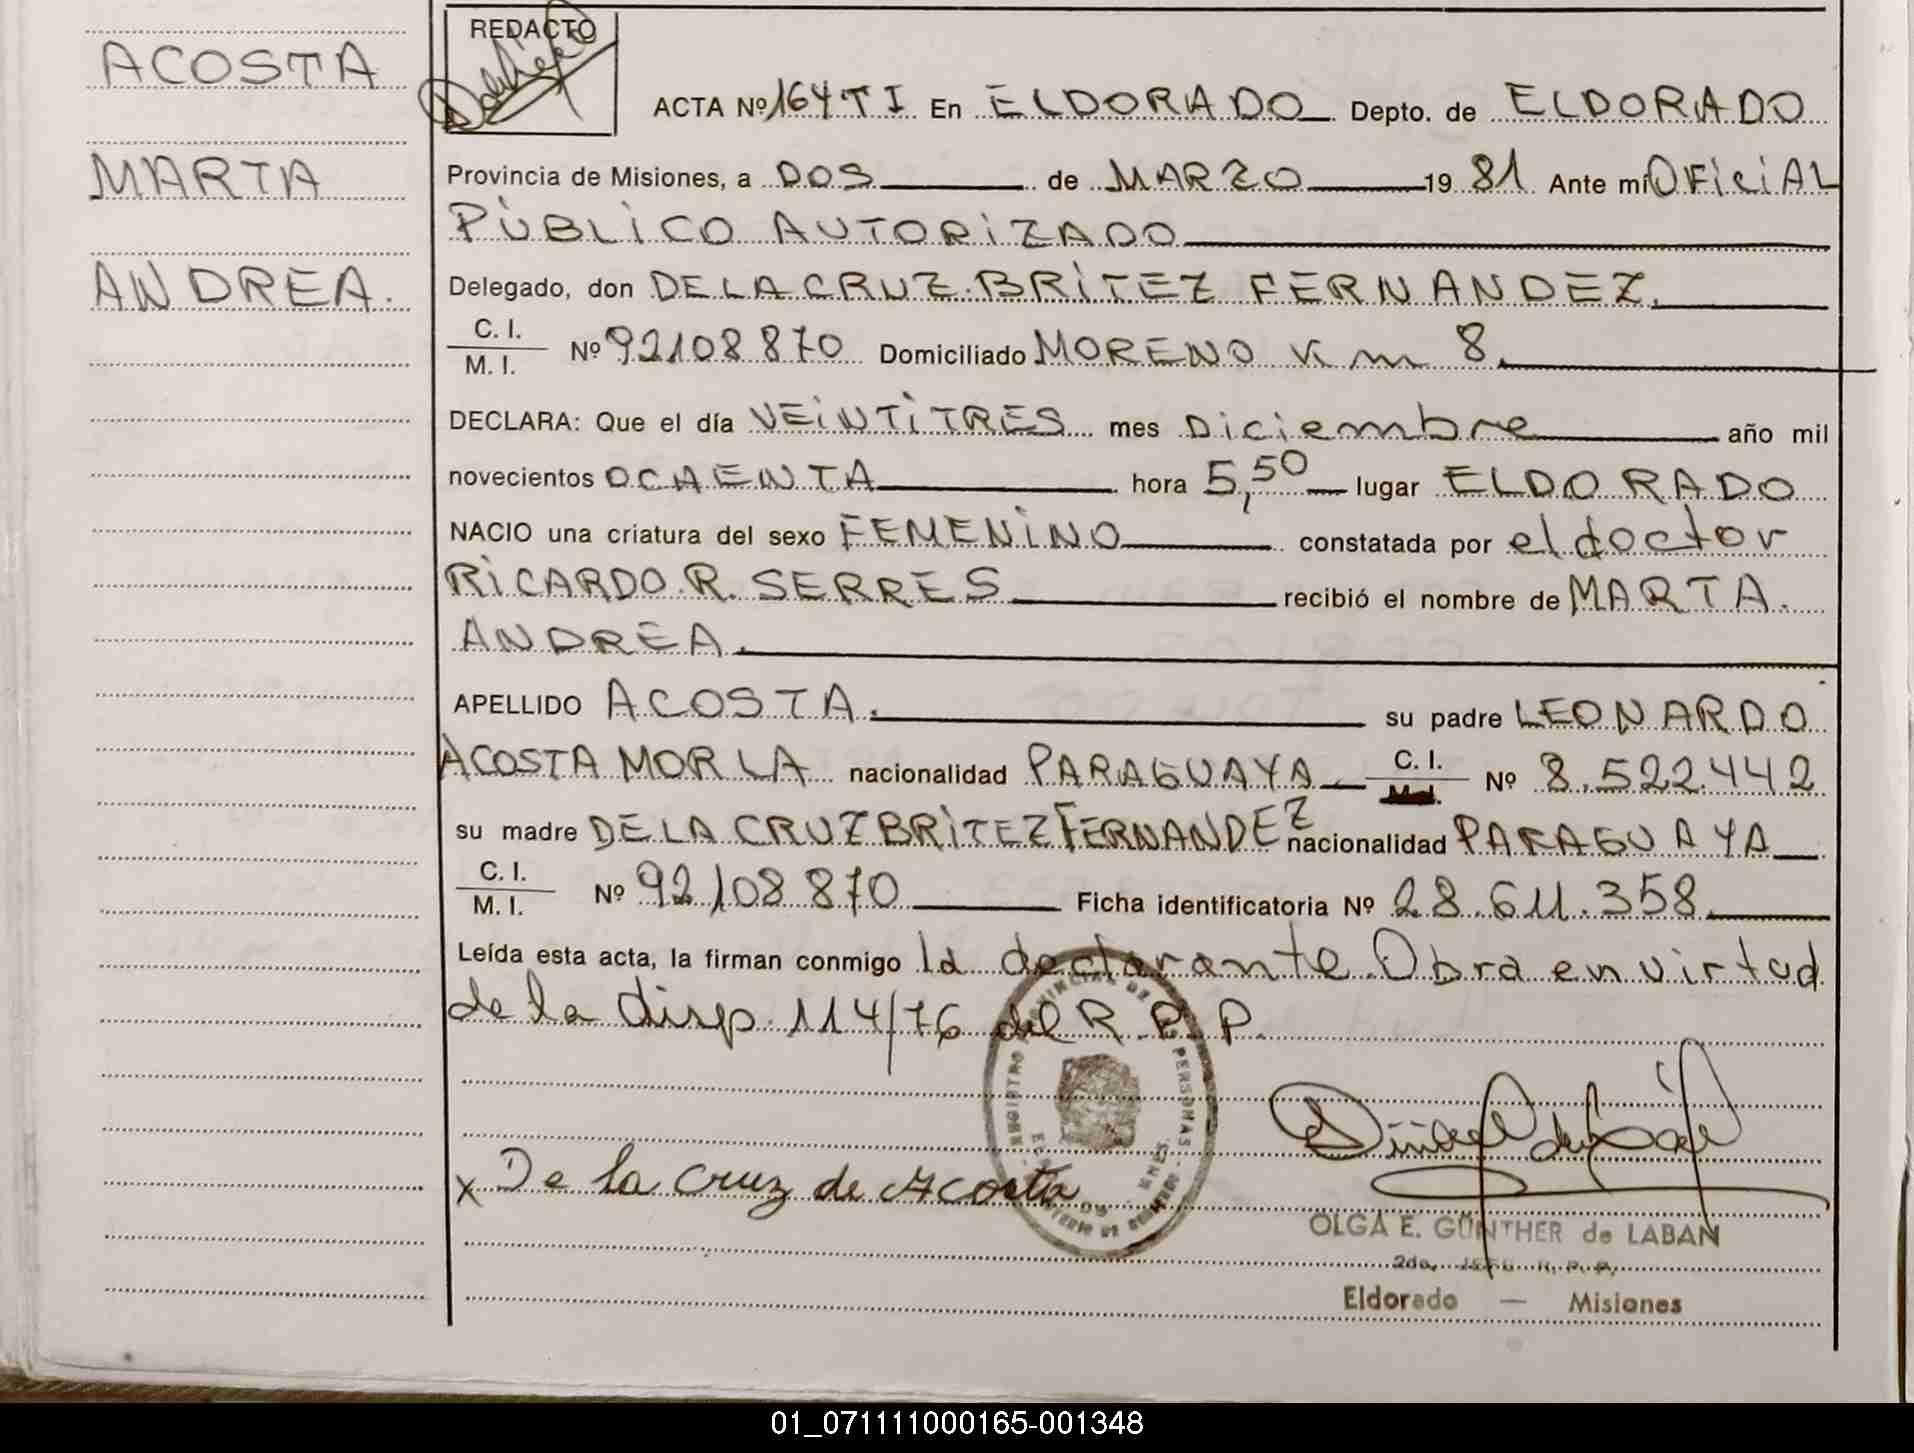 ACOSTA
MARTA
ANDREA.
REDACTO
ACTA Nº 164 TI En ELDORADO Depto. de ELDORADO
Provincia de Misiones, a DOS de MARZO 1981 Ante mí OFICIAL
PÚBLICO AUTORIZADO
Delegado, don DE LA CRUZ BRITEZ FERNANDEZ.
C. I.
M. I. Nº 92108870 Domiciliado MORENO Km 8.
DECLARA: Que el día VEINTITRES mes Diciembre año mil
novecientos OCHENTA hora 5,50 lugar ELDORADO
NACIO una criatura del sexo FEMENINO constatada por el doctor
RICARDO R. SERRES recibió el nombre de MARTA
ANDREA.
APELLIDO ACOSTA. su padre LEONARDO
ACOSTA MORLA nacionalidad PARAGUAYA C. I. Nº 8.522.442
su madre DE LA CRUZ BRITEZ FERNANDEZ nacionalidad PARAGUAYA
C. I.
M. I. Nº 92108870 Ficha identificatoria Nº 28.611.358
Leída esta acta, la firman conmigo la declarante. Obra en virtud
de la disp. 114/76 del R. P. P.
x De la Cruz de Acosta
OLGA E. GÜNTHER de LABAN
2do. JEFE R. P. P.
Eldorado — Misiones
01_071111000165-001348